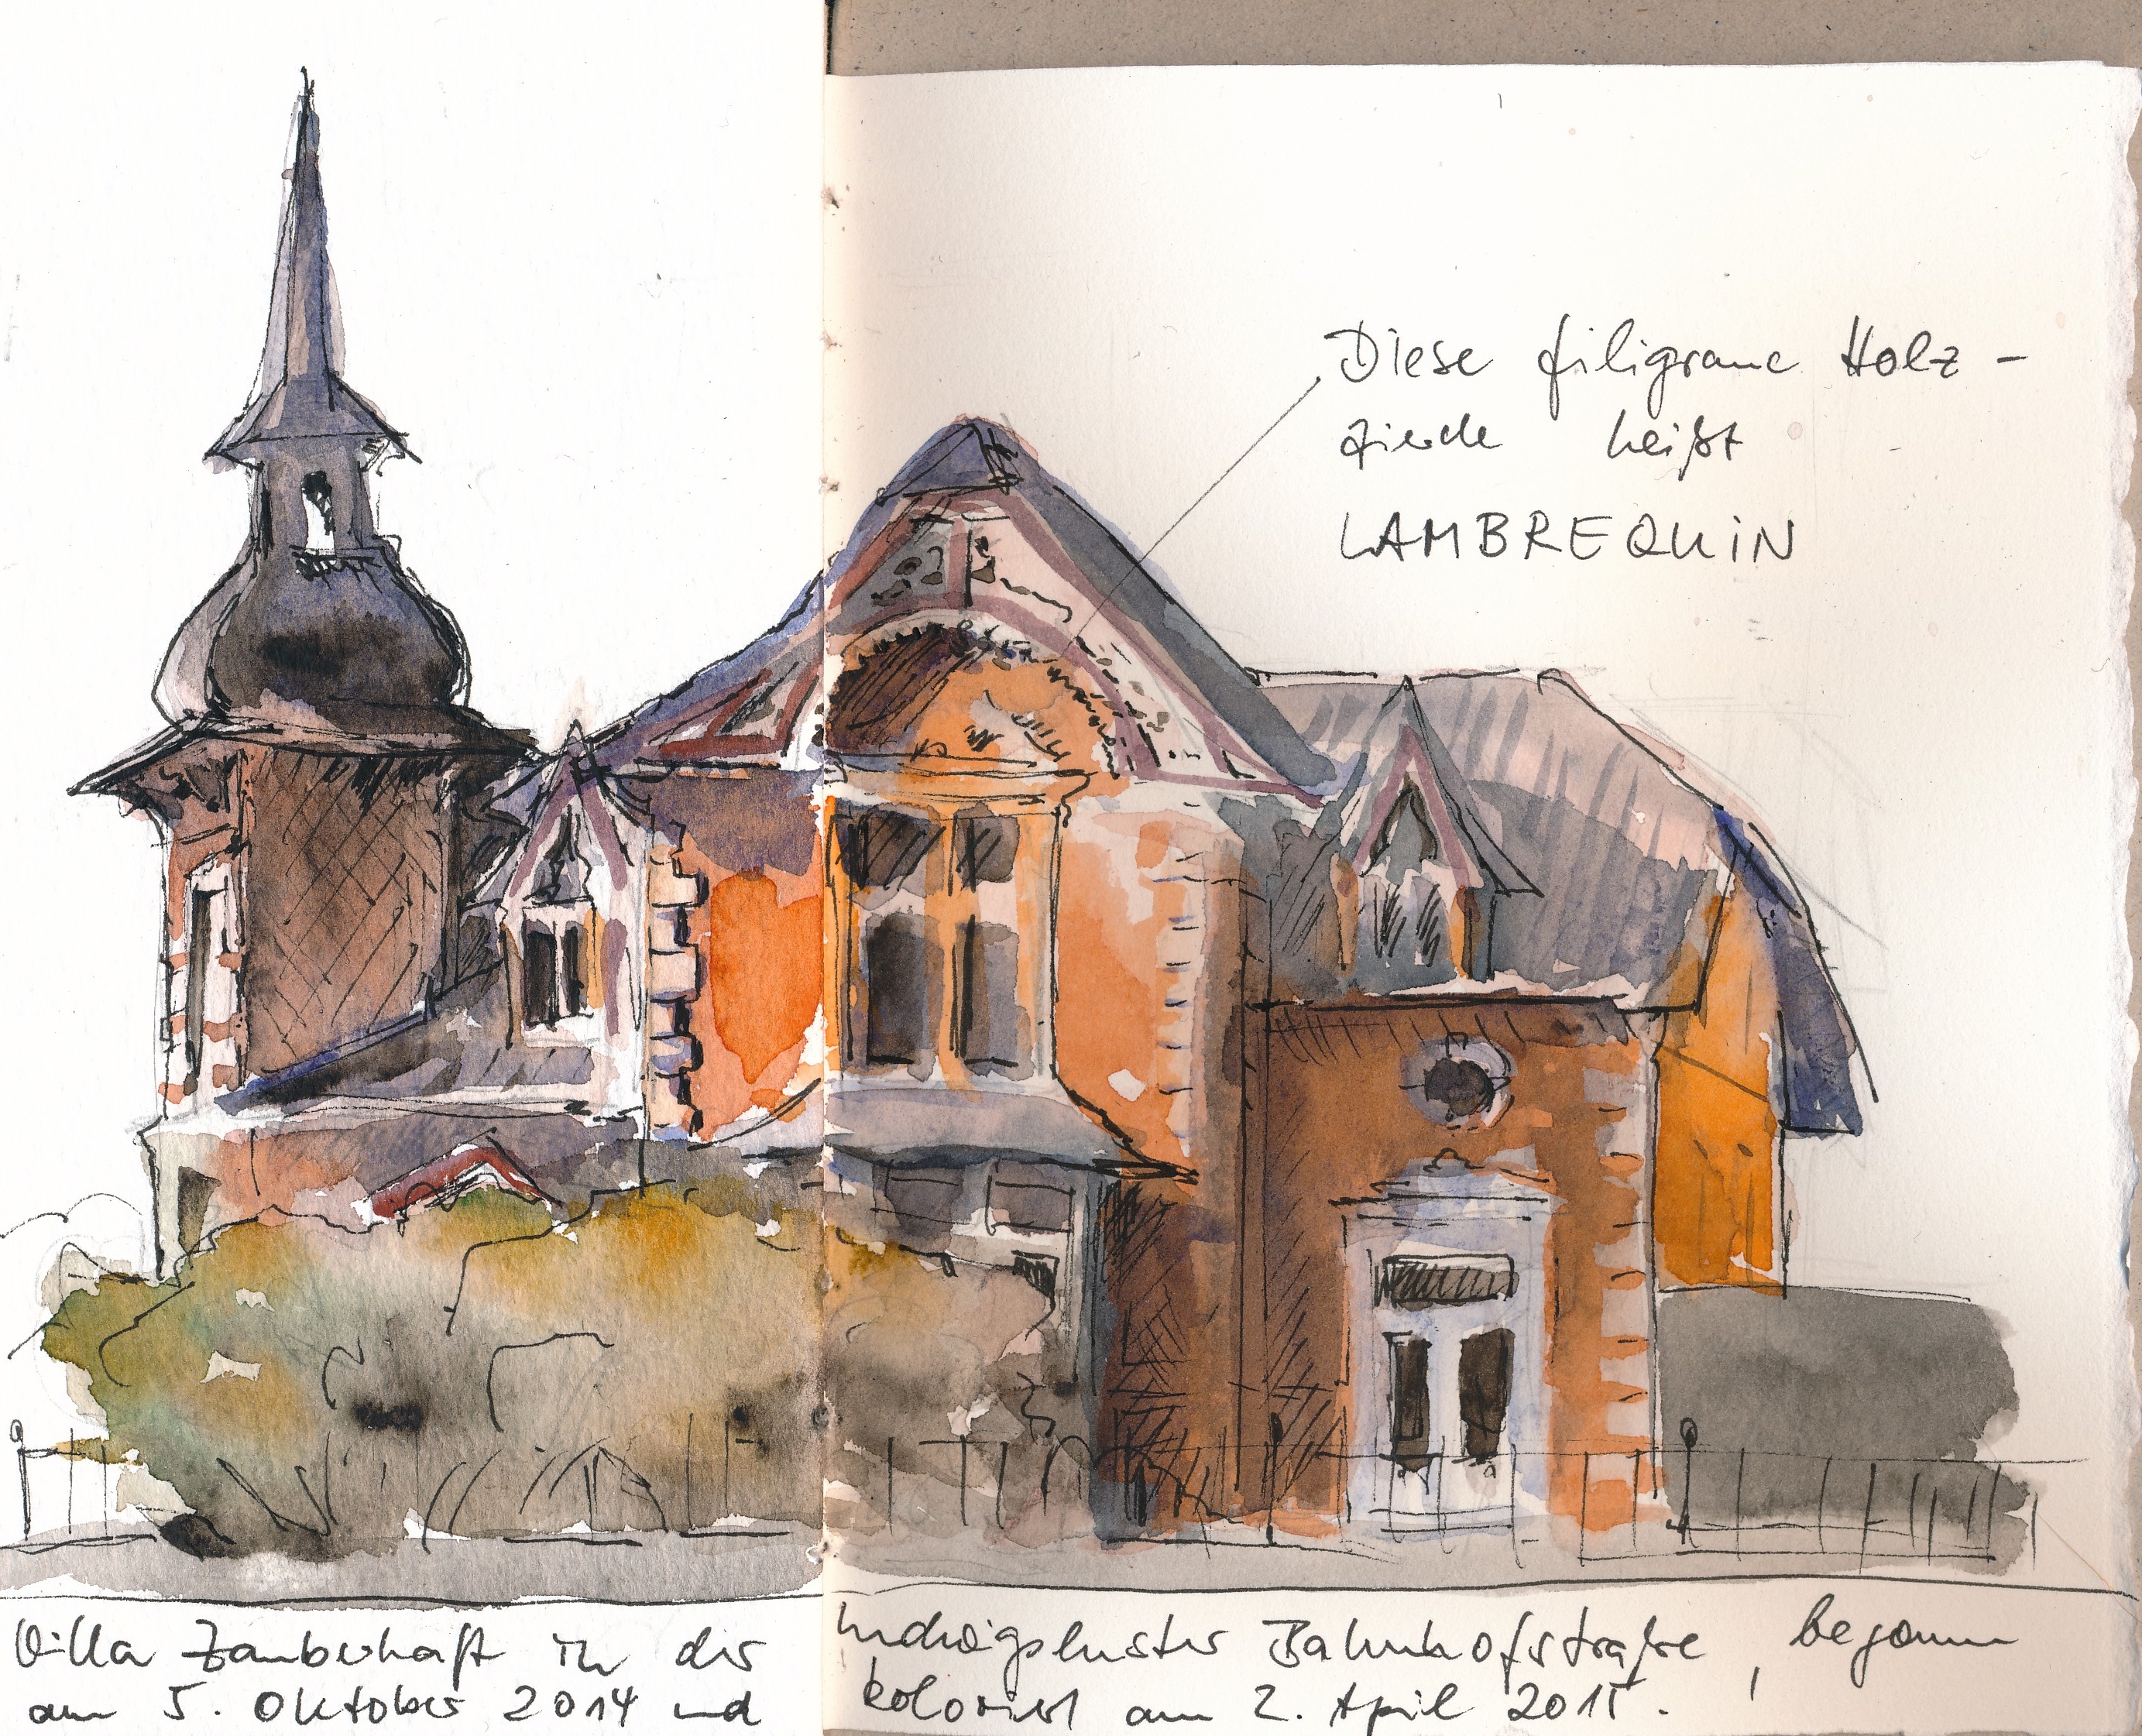 Diese filigrane Holz-
zierde heißt
LAMBREQUIN
Villa Zauberhaft in der Ludwigsluster Bahnhofstraße, begonnen
am 5. Oktober 2014 und koloriert am 2. April 2015.